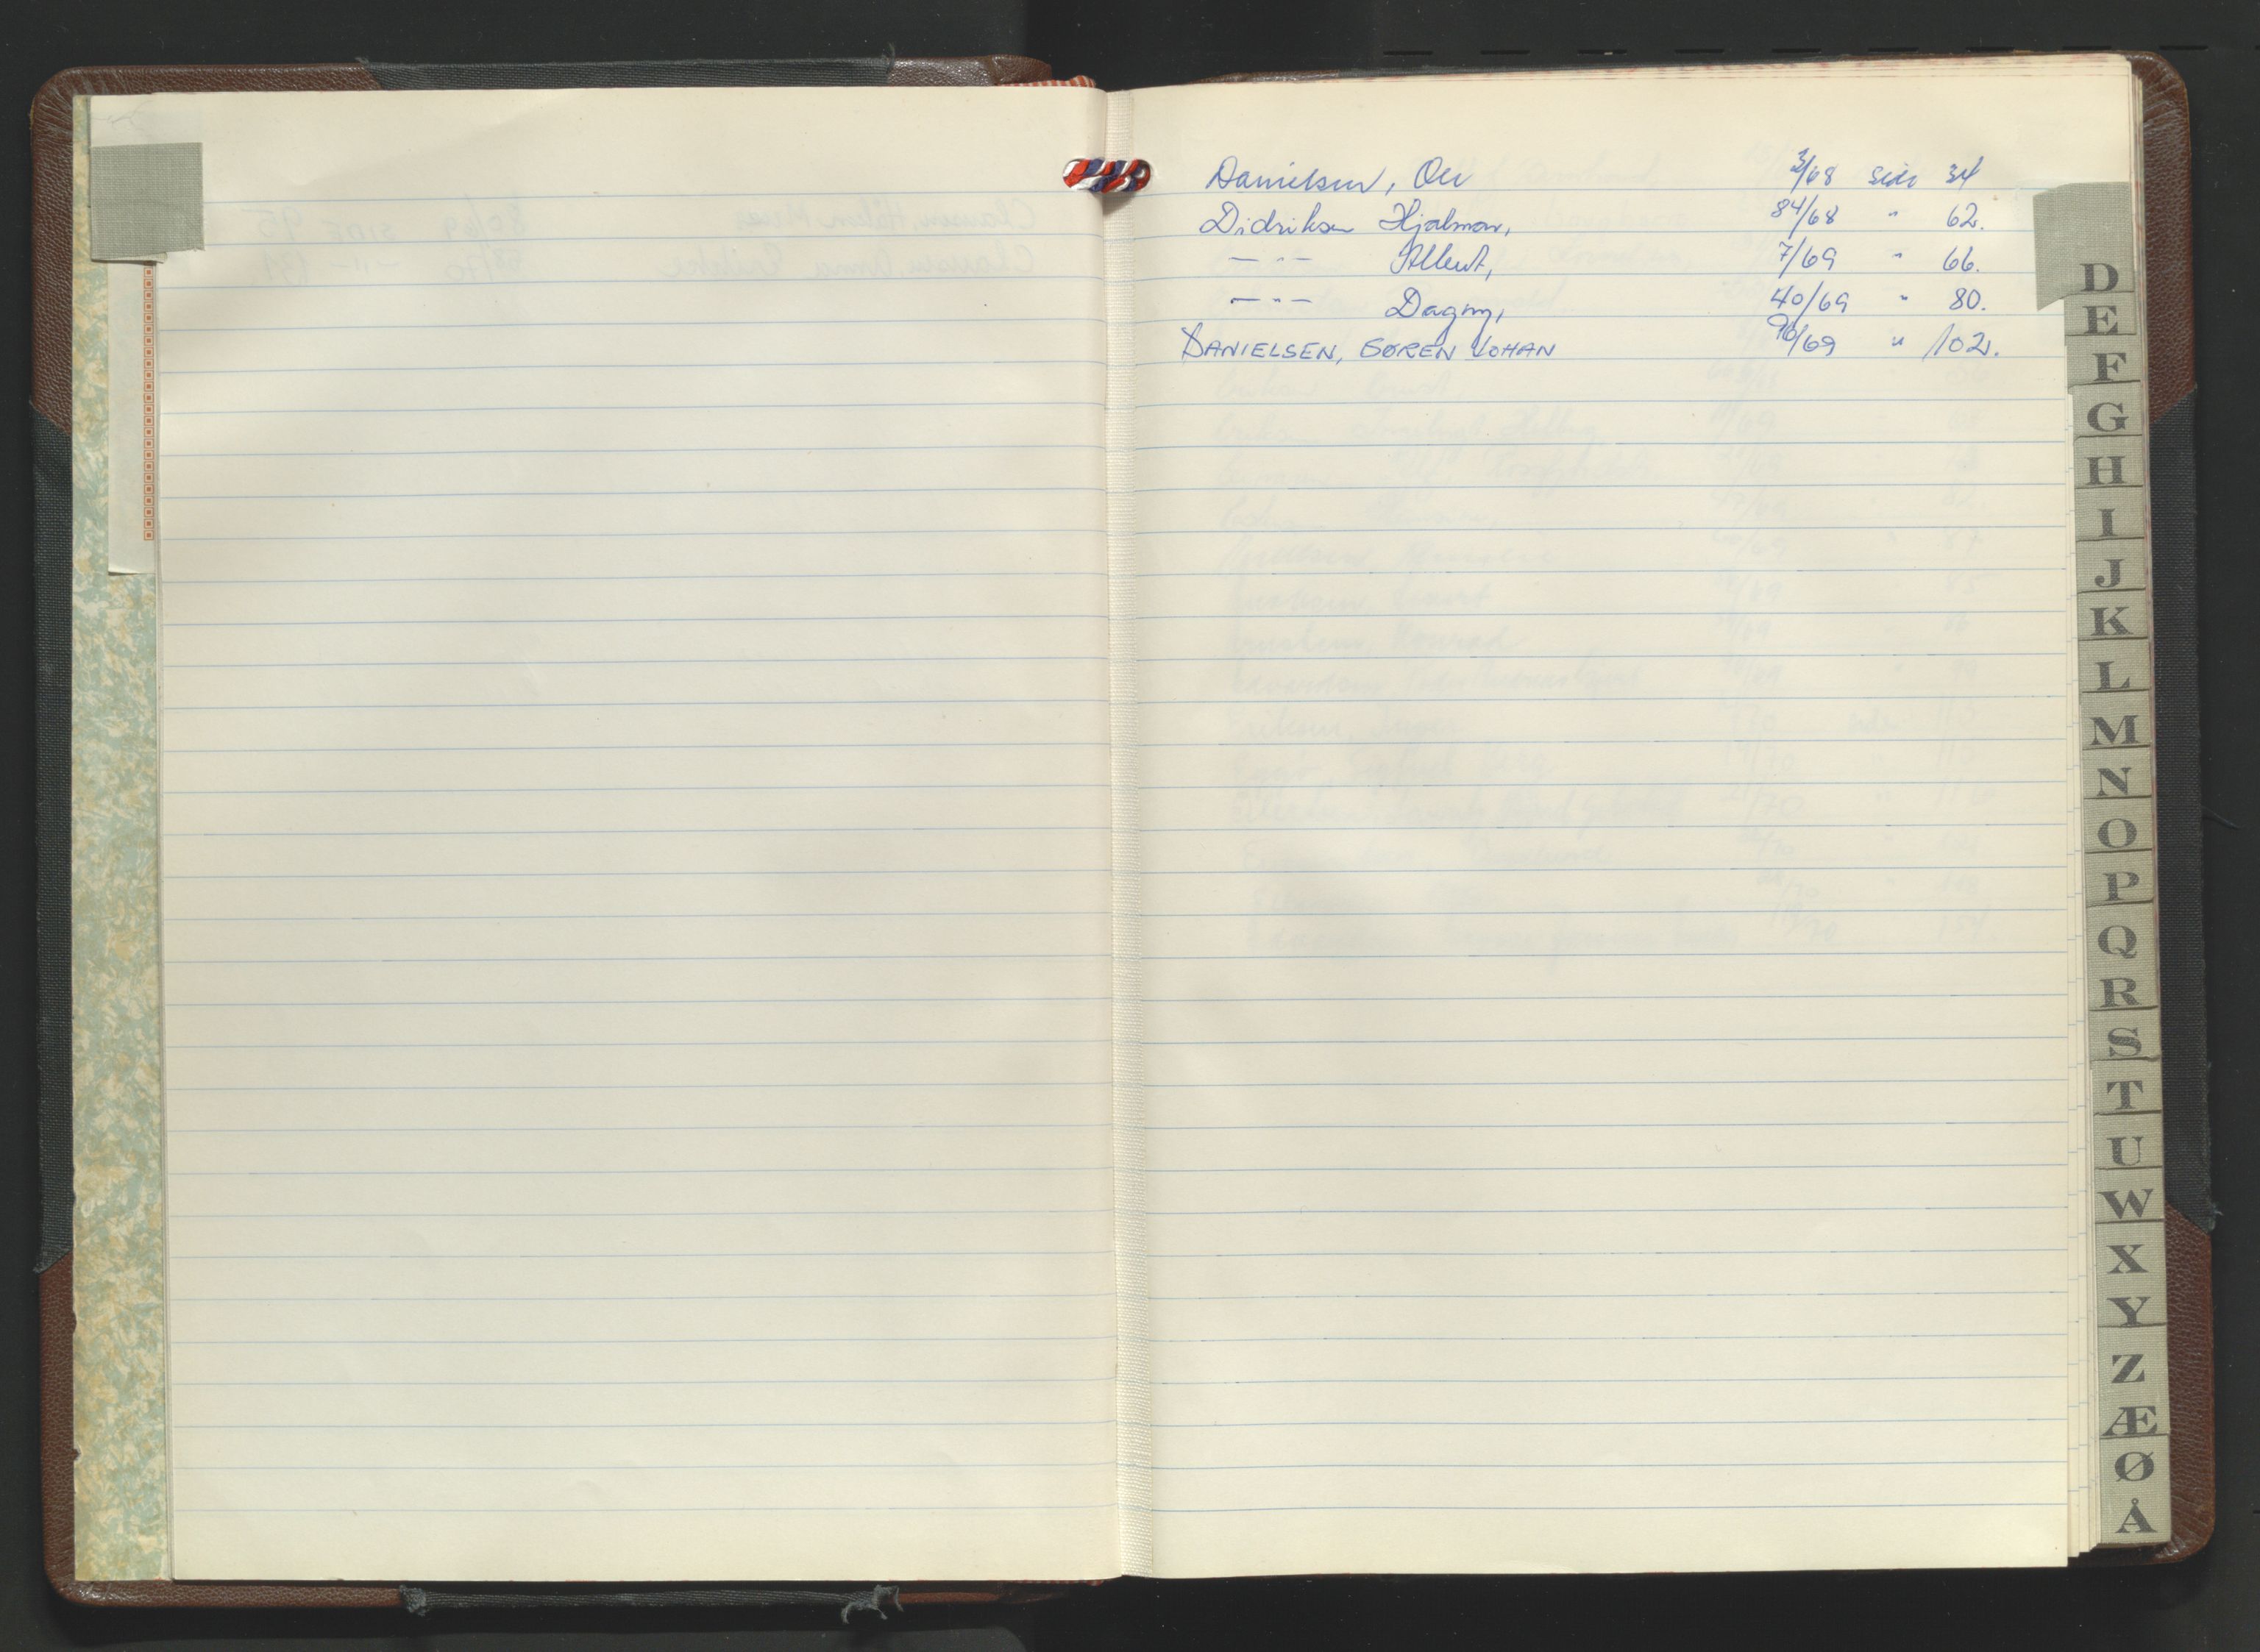 Danielsen, Ole 3/68 side 34
Didriksen Hjalmar, 84/68 " 62.
—"— Albert, 7/69 " 66.
—"— Dagny, 40/69 " 80.
DANIELSEN, SØREN JOHAN 90/69 " 102.
D
E
F
G
H
I
J
K
L
M
N
O
P
Q
R
S
T
U
W
X
Y
Z
Æ
Ø
Å